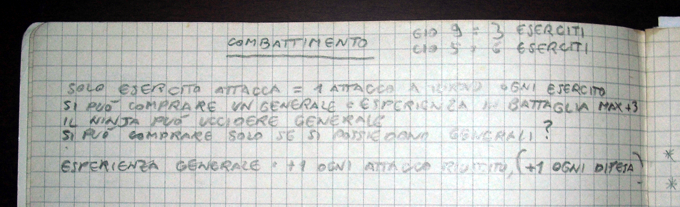 COMBATTIMENTO
9 = 3 ESERCITI
5 = 6 ESERCITI
SOLO ESERCITO ATTACCA = 1 ATTACCO A OGNI ESERCITO
SI PUÒ COMPRARE UN GENERALE = ESPERIENZA IN BATTAGLIA MAX +3
IL NINJA PUÒ UCCIDERE GENERALE
SI PUÒ COMPRARE SOLO SE SI POSSIEDONO GENERALI?
ESPERIENZA GENERALE = +1 OGNI ATTACCO RIUSCITO, (+1 OGNI DIFESA)
*
*